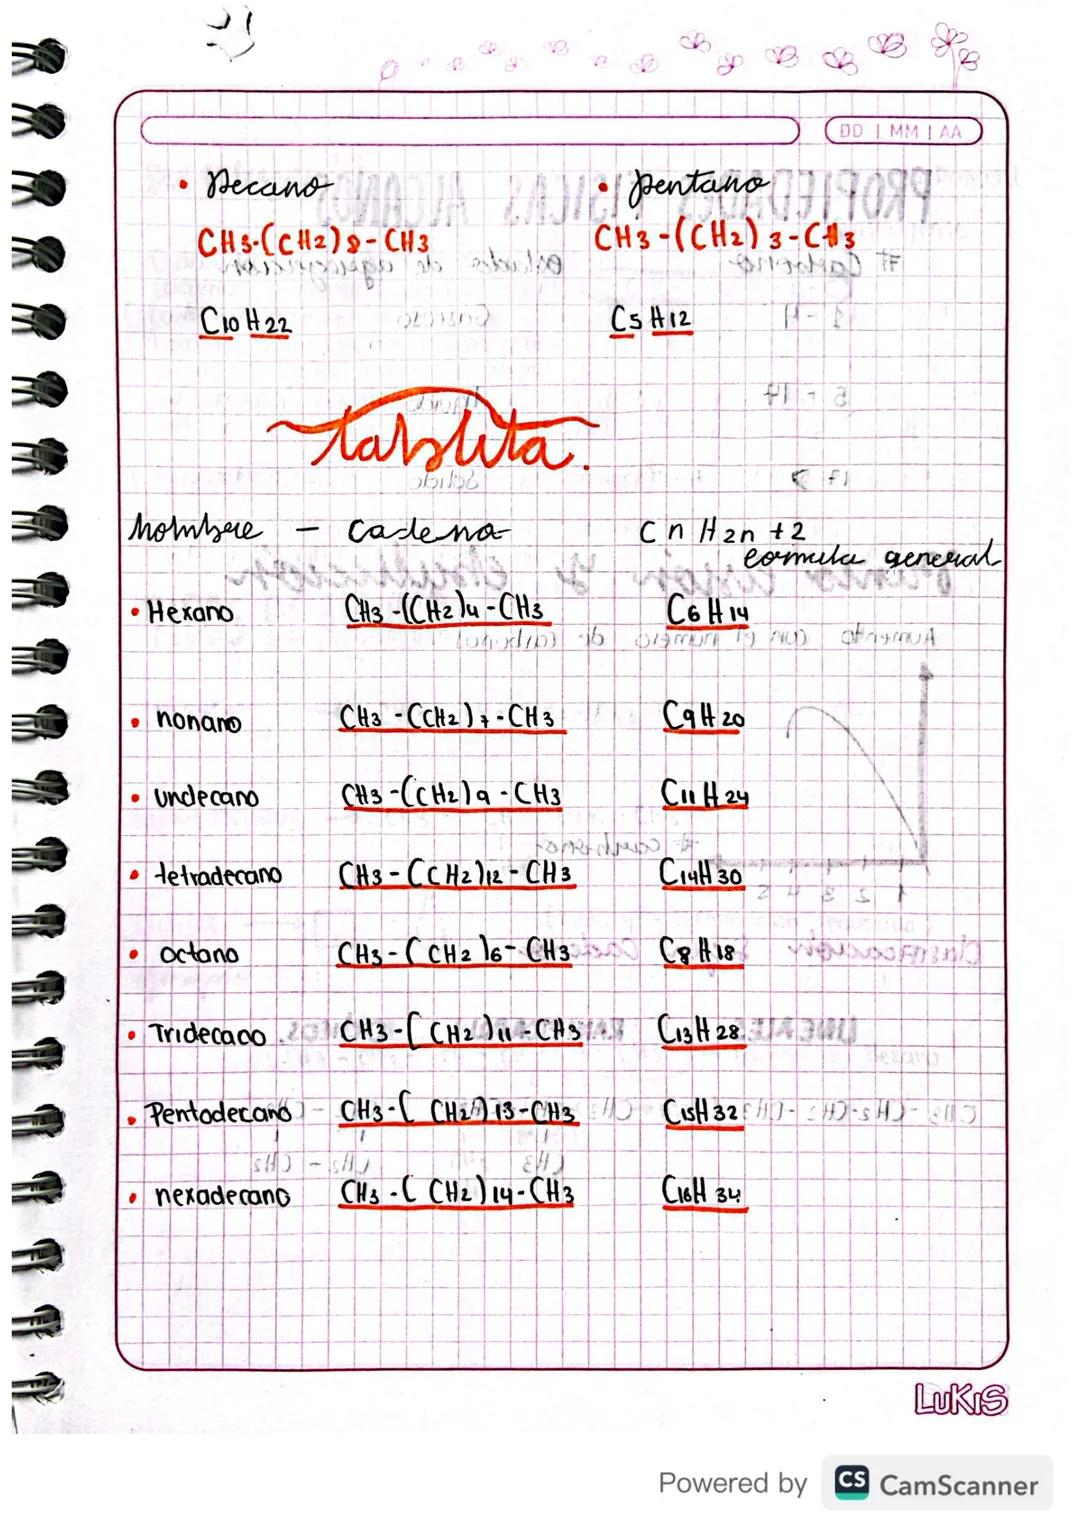 DD | MM | AA
• Decano • pentano
CH3-(CH2)8-CH3 CH3-(CH2)3-CH3
C10H22 C5H12
tablita.
Nombre - Cadena CnH2n+2
formula general
• Hexano CH3-(CH2)4-CH3 C6H14
• nonano CH3-(CH2)7-CH3 C9H20
• undecano CH3-(CH2)9-CH3 C11H24
• tetradecano CH3-(CH2)12-CH3 C14H30
• octano CH3-(CH2)6-CH3 C8H18
• Tridecano CH3-[CH2)11-CH3 C13H28
• Pentadecano CH3-[CH2)13-CH3 C15H32
• hexadecano CH3-(CH2)14-CH3 C16H34
LUKIS
Powered by CS CamScanner